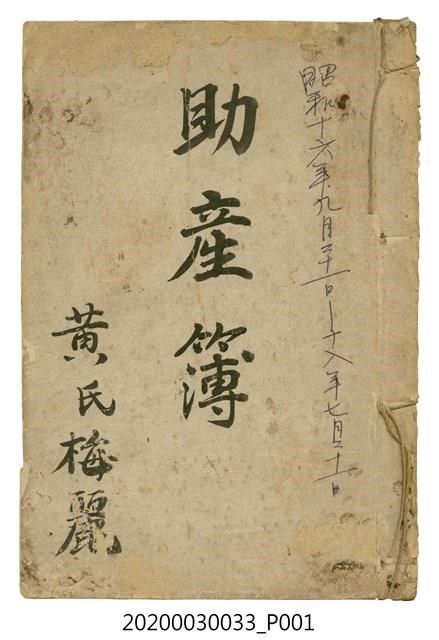 昭和十六年九月二十一日—十八年七月二十一日
助産簿
黄氏梅麗
20200030033_P001